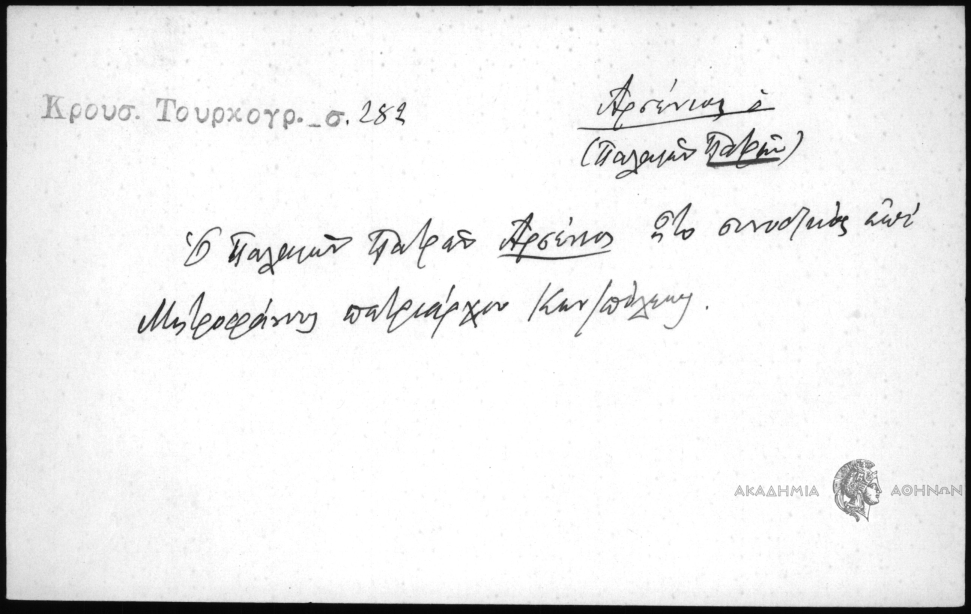 Κρουσ. Τουρκογρ. _ σ. 282
Ἀρσένιος ὁ
(Παλαιῶν Πατρῶν)
Ὁ Παλαιῶν Πατρῶν Ἀρσένιος ἦτο συνοδικὸς ἐπὶ
Μητροφάνους πατριάρχου Κων/πόλεως.
ΑΚΑΔΗΜΙΑ ΑΘΗΝΩΝ